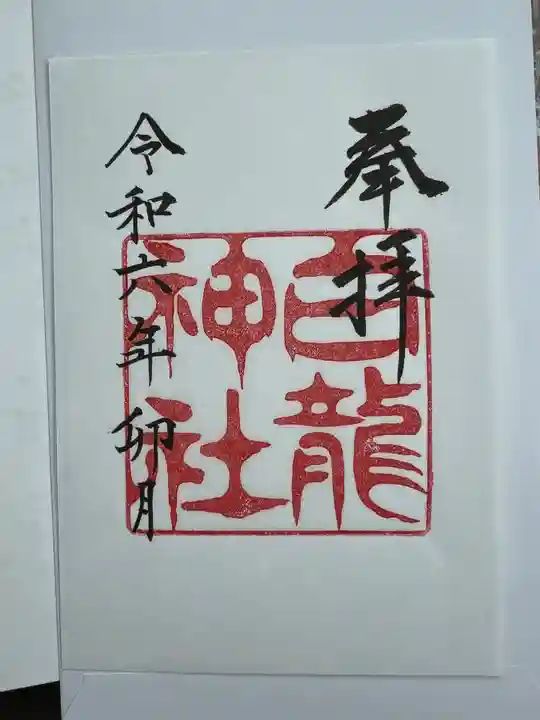 奉拝
白龍
神社
令和六年 卯月